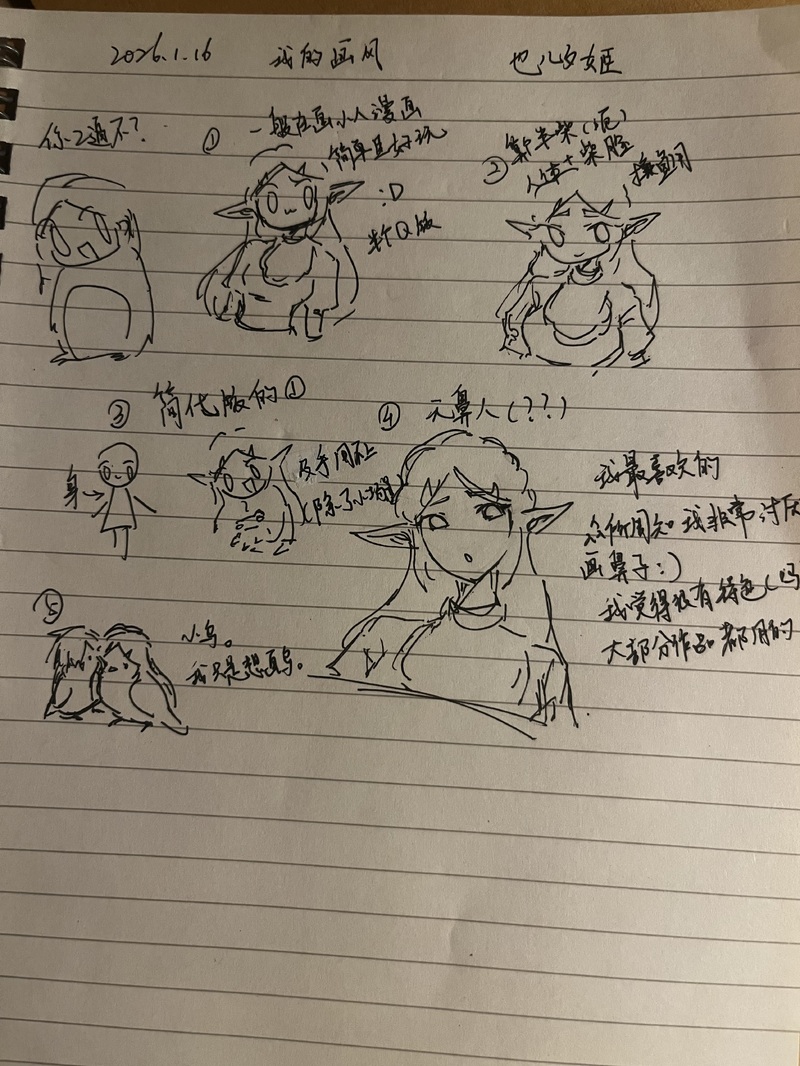 2026.1.16 我的画风
你之通不?
① 一般在画小人漫画
简单且好玩
:D
半Q版
②
③ 简化版的①
身→
及乎用不上
(除了小漫
④ 无鼻人(??)
我最喜欢的
众所周知我非常讨厌
画鼻子:)
我觉得很有特色(吗
大部分作品都用的
⑤
小鸟。
我只是想画鸟。